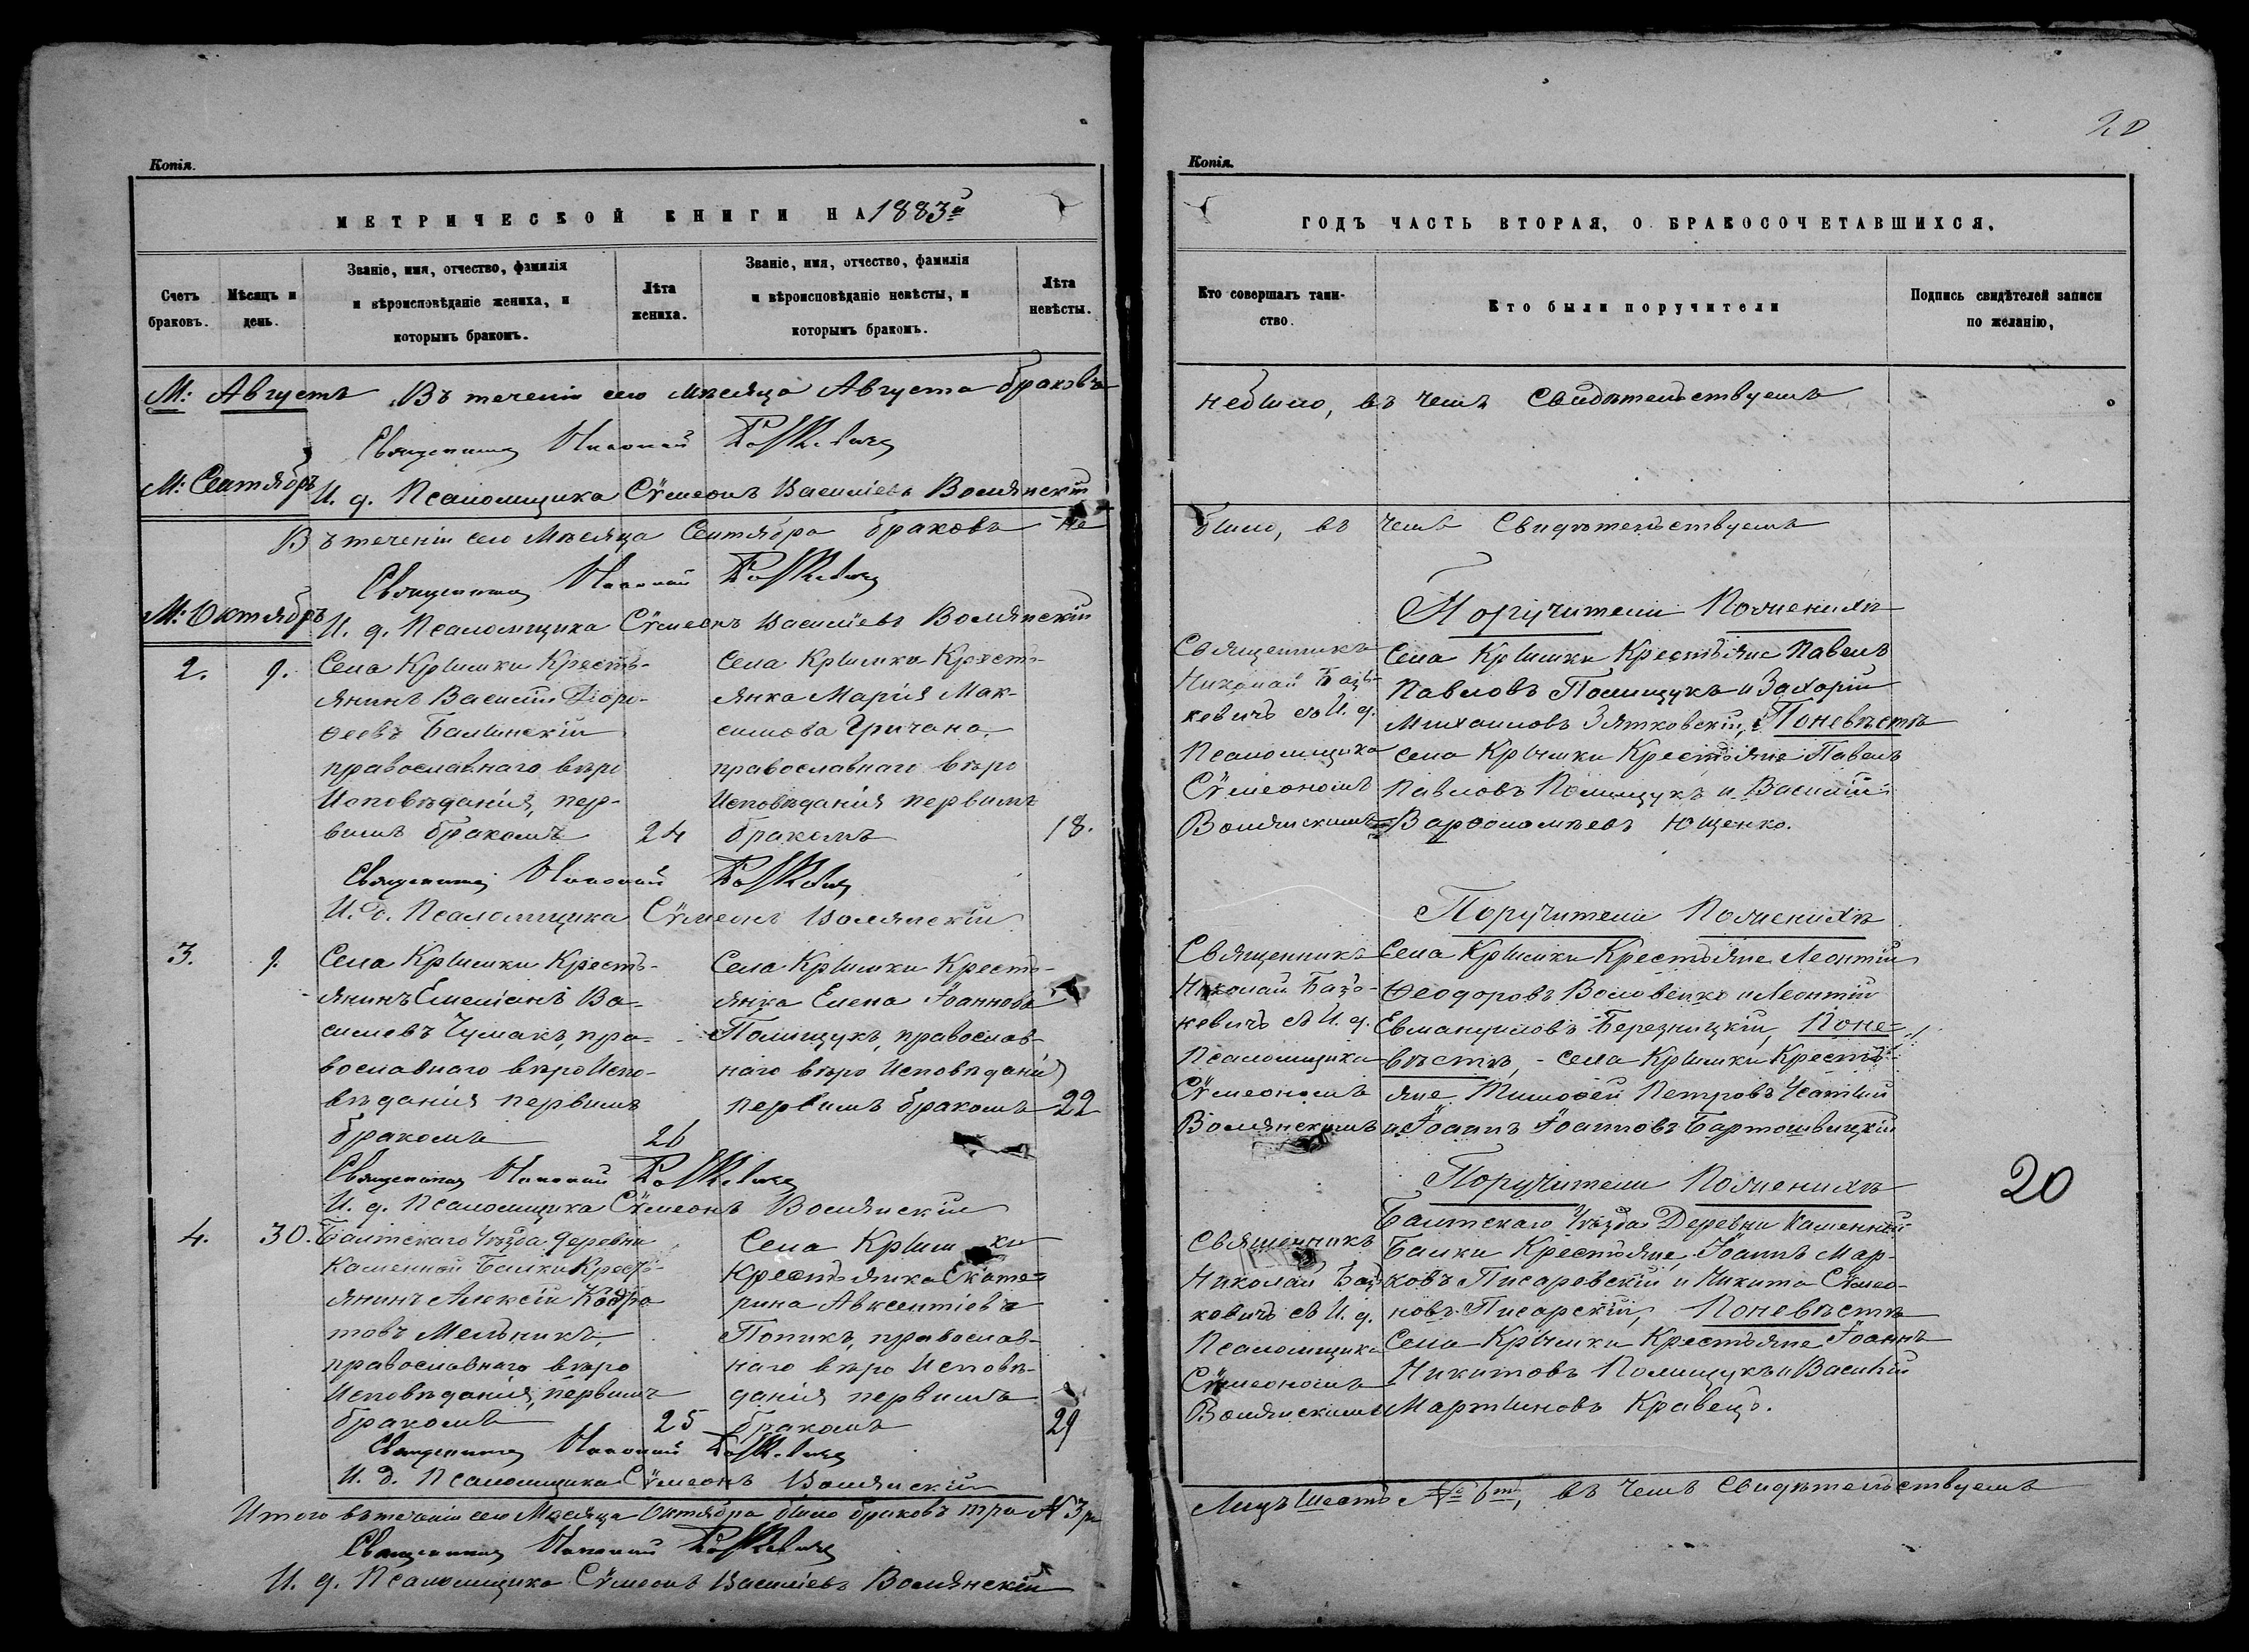 Копія.
МЕТРИЧЕСКОЙ КНИГИ НА 1883й
Счетъ браковъ.
Мѣсяцъ и день.
Званіе, имя, отчество, фамилія и вѣроисповѣданіе жениха, и которымъ бракомъ.
Лѣта жениха.
Званіе, имя, отчество, фамилія и вѣроисповѣданіе невѣсты, и которымъ бракомъ.
Лѣта невѣсты.
М: Августъ Въ теченіи сего мѣсяца Августа браковъ
Священникъ Николай
М: Сентябрь
И. д. Псаломщика Сѵмеонъ Василіевъ Волянскій
Въ теченіи сего Мѣсяца Сентября браковъ не
Священникъ Николай
М: Октябрь
И. д. Псаломщика Сѵмеонъ Василіевъ Волянскій
2. 9.
Села Крымки Кресть-
янинъ Василій Доро-
ѳеевъ Балинскій
православнаго вѣро
Исповѣданія, пер-
вымъ бракомъ
24
Села Крымки Кресть-
янка Марія Мак-
симова Гричана,
православнаго вѣро
Исповѣданія первымъ
бракомъ
18.
Священникъ Николай
И. д. Псаломщика Сѵмеонъ Волянскій
3. 9.
Села Крымки Кресть-
янинъ Емеліанъ Ва-
силіевъ Чумакъ, пра-
вославнаго вѣро Испо-
вѣданія первымъ
бракомъ
26
Села Крымки Кресть-
янка Елена Іоаннова
Полищукъ, православ-
наго вѣро Исповѣданія
первымъ бракомъ 22
Священникъ Николай
И. д. Псаломщика Сѵмеонъ Волянскій
4. 30.
Балтскаго Уѣзда деревни
Каменной Балки Кресть-
янинъ Алексій Кодра
товъ Мельникъ,
православнаго вѣро
Исповѣданія, первымъ
бракомъ
25
Села Крымки
Крестьянка Екате-
рина Авксентіева
Попикъ, православ-
наго вѣро Исповѣ-
данія первымъ
бракомъ
29
Священникъ Николай
И. д. Псаломщика Сѵмеонъ Волянскій
Итого въ теченіи сего Мѣсяца Октября было браковъ три № 3
Священникъ Николай
И. д. Псаломщика Сѵмеонъ Василіевъ Волянскій
20
Копія.
ГОДЪ ЧАСТЬ ВТОРАЯ, О БРАКОСОЧЕТАВШИХСЯ.
Кто совершалъ таин-
ство.
Кто были поручители
Подпись свидѣтелей записи
по желанію,
небыло, въ чемъ Свидѣтельствуемъ
было, въ чемъ Свидѣтельствуемъ
Священникъ
Николай Баць-
кевичъ съ И. д.
Псаломщика
Сѵмеономъ
Волянскимъ
Поручители По женихѣ
Села Крымки Крестьяне Павелъ
Павловъ Полищукъ и Захорій
Михаиловъ Зятковскій, По невѣстѣ
села Крымки Крестьяне Павелъ
Павловъ Полищукъ и Василій
Варѳоломѣевъ Ющенко.
Священникъ
Николай Баць-
кевичъ съ И. д.
Псаломщика
Сѵмеономъ
Волянскимъ
Поручители По женихѣ
Села Крымки Крестьяне Леонтій
Ѳеодоровъ Воловенко и Леонтій
Евмануиловъ Березницкій, По не-
вѣстѣ, - села Крымки Кресть-
яне Тимоѳей Петровъ Усатый
и Іоаннъ Іоанновъ Бартошвицкій
Священникъ
Николай Баць
кевичъ съ И. д.
Псаломщика
Сѵмеономъ
Волянскимъ
Поручители По женихѣ
Балтскаго Уѣзда Деревни Каменной
Балки Крестьяне, Іоаннъ Мар-
ковъ Писаревскій и Никита Сѵмео-
новъ Писарскій, По невѣстѣ
Села Крымки Крестьяне Іоаннъ
Никитовъ Полищукъ и Василій
Мартыновъ Кравецъ.
20
Лицъ Шесть № 6ть, въ чемъ Свидѣтельствуемъ